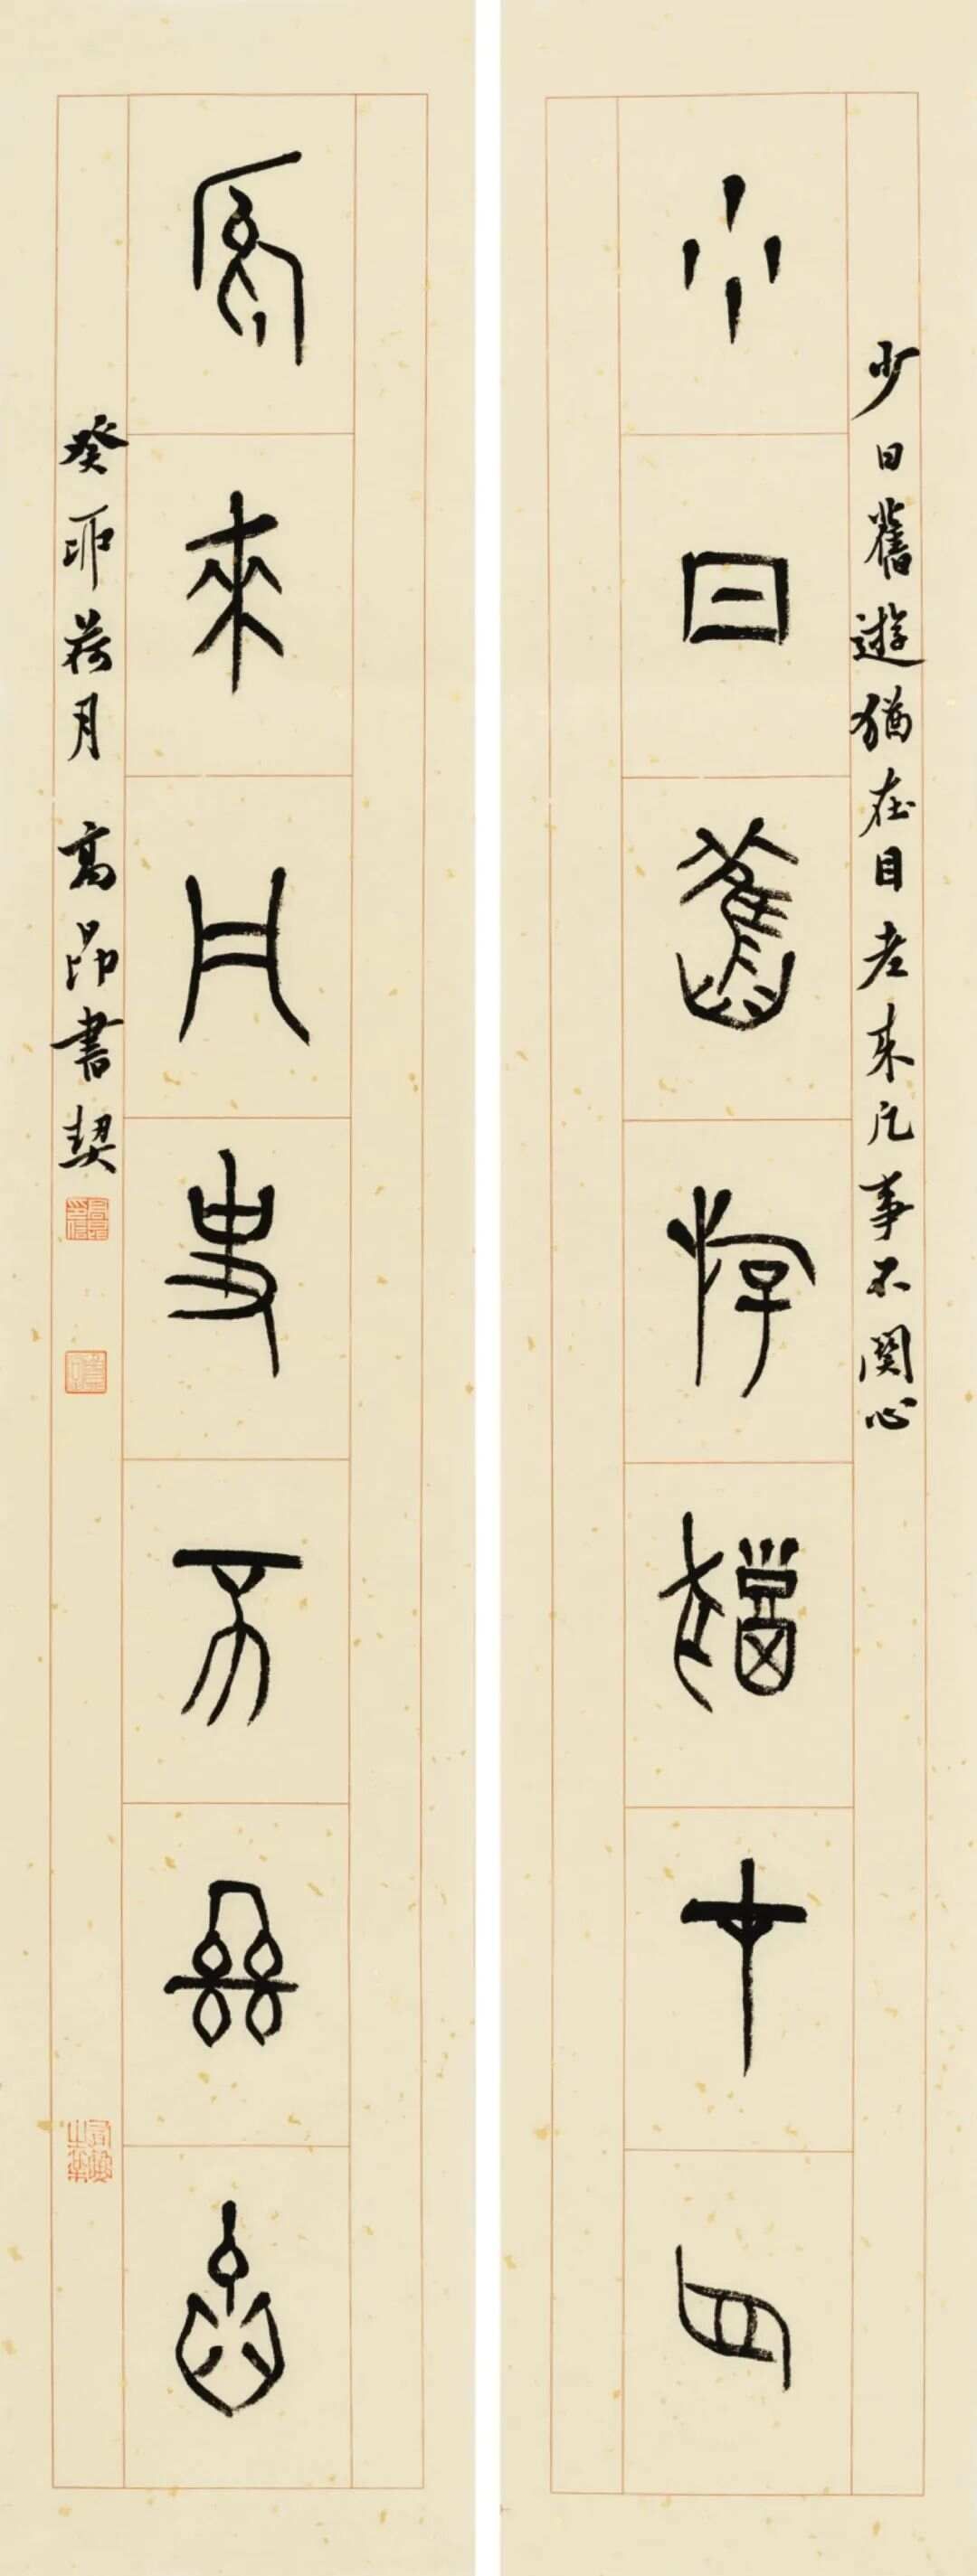 少日舊遊猶在目老来凡事不関心
少日舊斿猶才目
老來凡事不䜌心
癸卯荷月 高昂書契